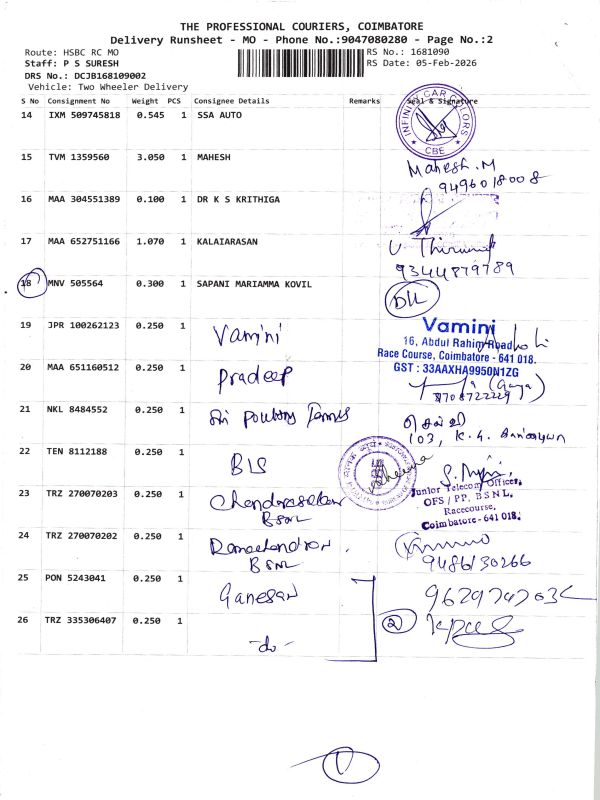 THE PROFESSIONAL COURIERS, COIMBATORE
Delivery Runsheet - MO - Phone No.:9047080280 - Page No.:2
Route: HSBC RC MO
RS No.: 1681090
Staff: P S SURESH
RS Date: 05-Feb-2026
DRS No.: DCJB168109002
Vehicle: Two Wheeler Delivery
S No Consignment No Weight PCS Consignee Details Remarks Seal & Signature
14 IXM 509745818 0.545 1 SSA AUTO
INFINITY CAR COLORS
CBE
15 TVM 1359560 3.050 1 MAHESH
Mahesh.M
9496018008
16 MAA 304551389 0.100 1 DR K S KRITHIGA
17 MAA 652751166 1.070 1 KALAIARASAN
9344879789
18 MNV 505564 0.300 1 SAPANI MARIAMMA KOVIL
DL
19 JPR 100262123 0.250 1 Vamini
Vamini
16, Abdul Rahim Road
Race Course, Coimbatore - 641 018.
GST : 33AAXHA9950N1ZG
20 MAA 651160512 0.250 1 Pradeep
(Gaya)
9706722229
21 NKL 8484552 0.250 1 Sri Poultry Farms
103, K. G.
22 TEN 8112188 0.250 1 BIS
Junior Telecom Officer,
OFS / PP, B S N L,
Racecourse,
Coimbatore - 641 018.
23 TRZ 270070203 0.250 1 Chandrasekar
BSNL
24 TRZ 270070202 0.250 1 Ramachandran
BSNL
9486130266
25 PON 5243041 0.250 1 Ganesan
26 TRZ 335306407 0.250 1 -do-
2
1